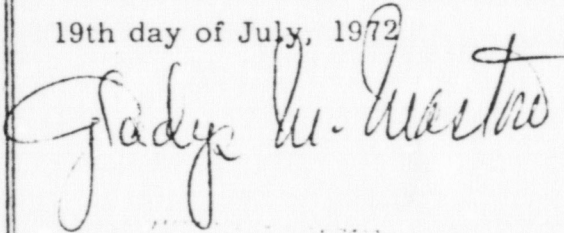 19th day of July, 1972
Gladys M. Mastro